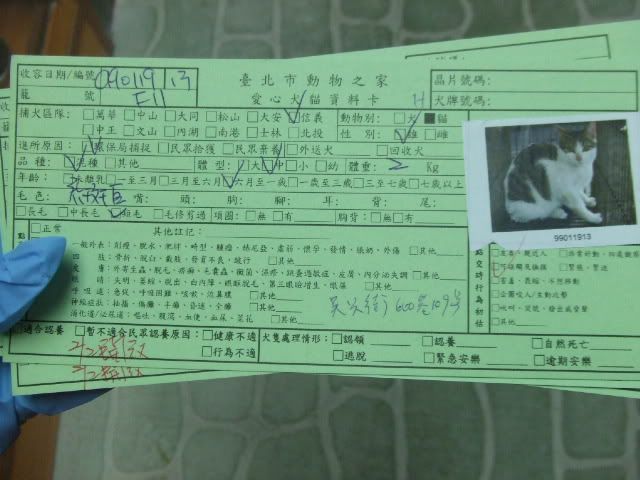 收容日期/編號 090119 13
籠號 E11
臺北市動物之家
愛心犬貓資料卡
晶片號碼:
犬牌號碼:
捕犬區隊: □萬華 □中山 □大同 □松山 □大安 □信義 動物別: □犬 ■貓
□中正 □文山 □內湖 □南港 □士林 □北投 性別: □雄 □雌
進所原因: □環保局捕捉 □民眾拾獲 □民眾棄養 □外送犬 □回收犬
品種: □混種 □其他 體型: □大 □中 □小 □幼 體重: 2 Kg
年齡: □未離乳 □一至三月 □三至六月 □六月至一歲 □一歲至三歲 □三至七歲 □七歲以上
毛色: 嘴: 頭: 胸: 腳: 耳: 背: 尾:
□長毛 □中長毛 □短毛 □毛修剪過 項圈: □無 □有 胸背: □無 □有
99011913
□正常 其他註記:
一般外表: 削瘦、脫水、肥胖、畸型、腫瘤、赫尼亞、虛弱、懷孕、發情、脹奶、外傷 □其他
四肢: 骨折、脫臼、截肢、發育不良、跛行 □其他
皮膚: 外寄生蟲、脫毛、疥癬、毛囊蟲、黴菌、濕疹、跳蚤過敏症、皮屑、內分泌失調 □其他
眼睛: 失明、萎縮、脫出、白內障、眼瞼脫垂、第三眼瞼增生、眼屎 □其他
呼吸道: 急促、呼吸困難、咳嗽、流鼻膿 □其他
神經症狀: 抽搐、偏癱、半癱、昏迷、全癱 □其他
消化道/泌尿道: 嘔吐、腹瀉、血便、血尿、菜花 □其他
吳興街600巷109號
□適合認養 □暫不適合民眾認養原因: □健康不適 犬隻處理情形: □認領 □認養 □自然死亡
□行為不適 □逃脫 □緊急安樂 □逾期安樂